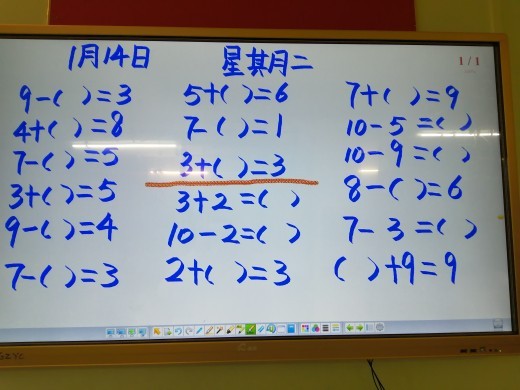 1月14日 星期二
1/1
9-( )=3 5+( )=6 7+( )=9
4+( )=8 7-( )=1 10-5=( )
7-( )=5 3+( )=3 10-9=( )
3+( )=5 3+2=( ) 8-( )=6
9-( )=4 10-2=( ) 7-3=( )
7-( )=3 2+( )=3 ( )+9=9